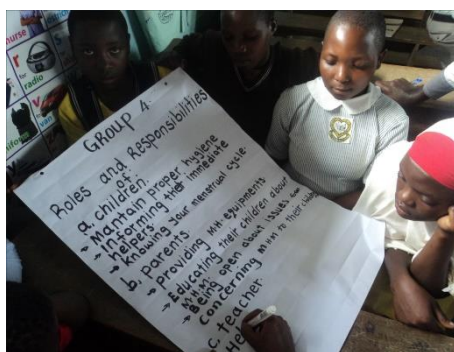 nurse
r
for
radio
s
v
for
van
GROUP 4:
Roles and Responsibilities
of:
a. children.
→ Mantain proper hygiene
→ Informing ther immediate
helpers.
→ Knowing your menstrual cycle.
b. Parents
→ Providing M.H. equipments
→ Educating their children about
M.H.M
→ Being open about issues
concerning MHM to their children
c. teacher
He